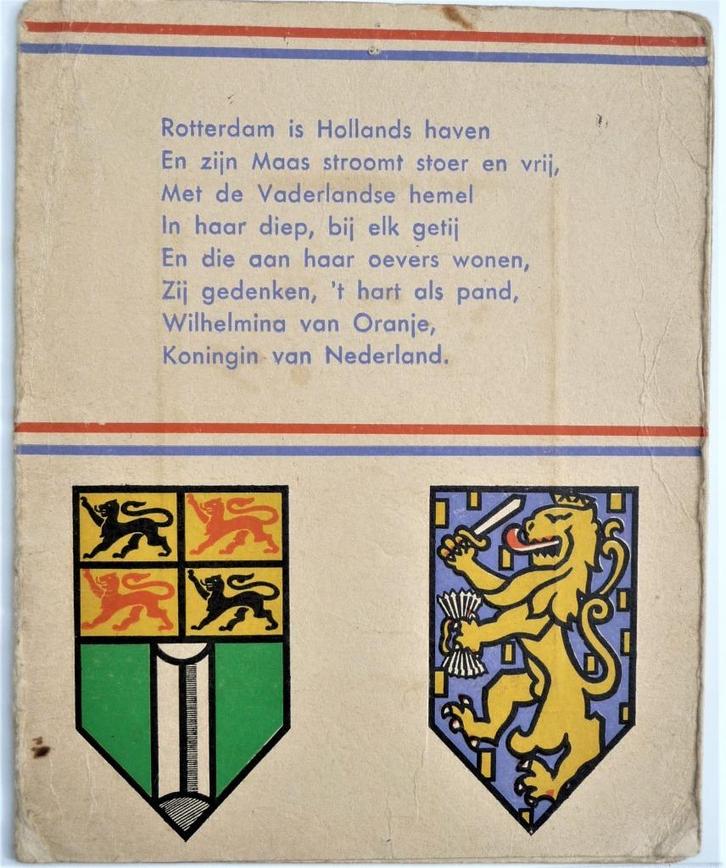 Rotterdam is Hollands haven
En zijn Maas stroomt stoer en vrij,
Met de Vaderlandse hemel
In haar diep, bij elk getij
En die aan haar oevers wonen,
Zij gedenken, 't hart als pand,
Wilhelmina van Oranje,
Koningin van Nederland.